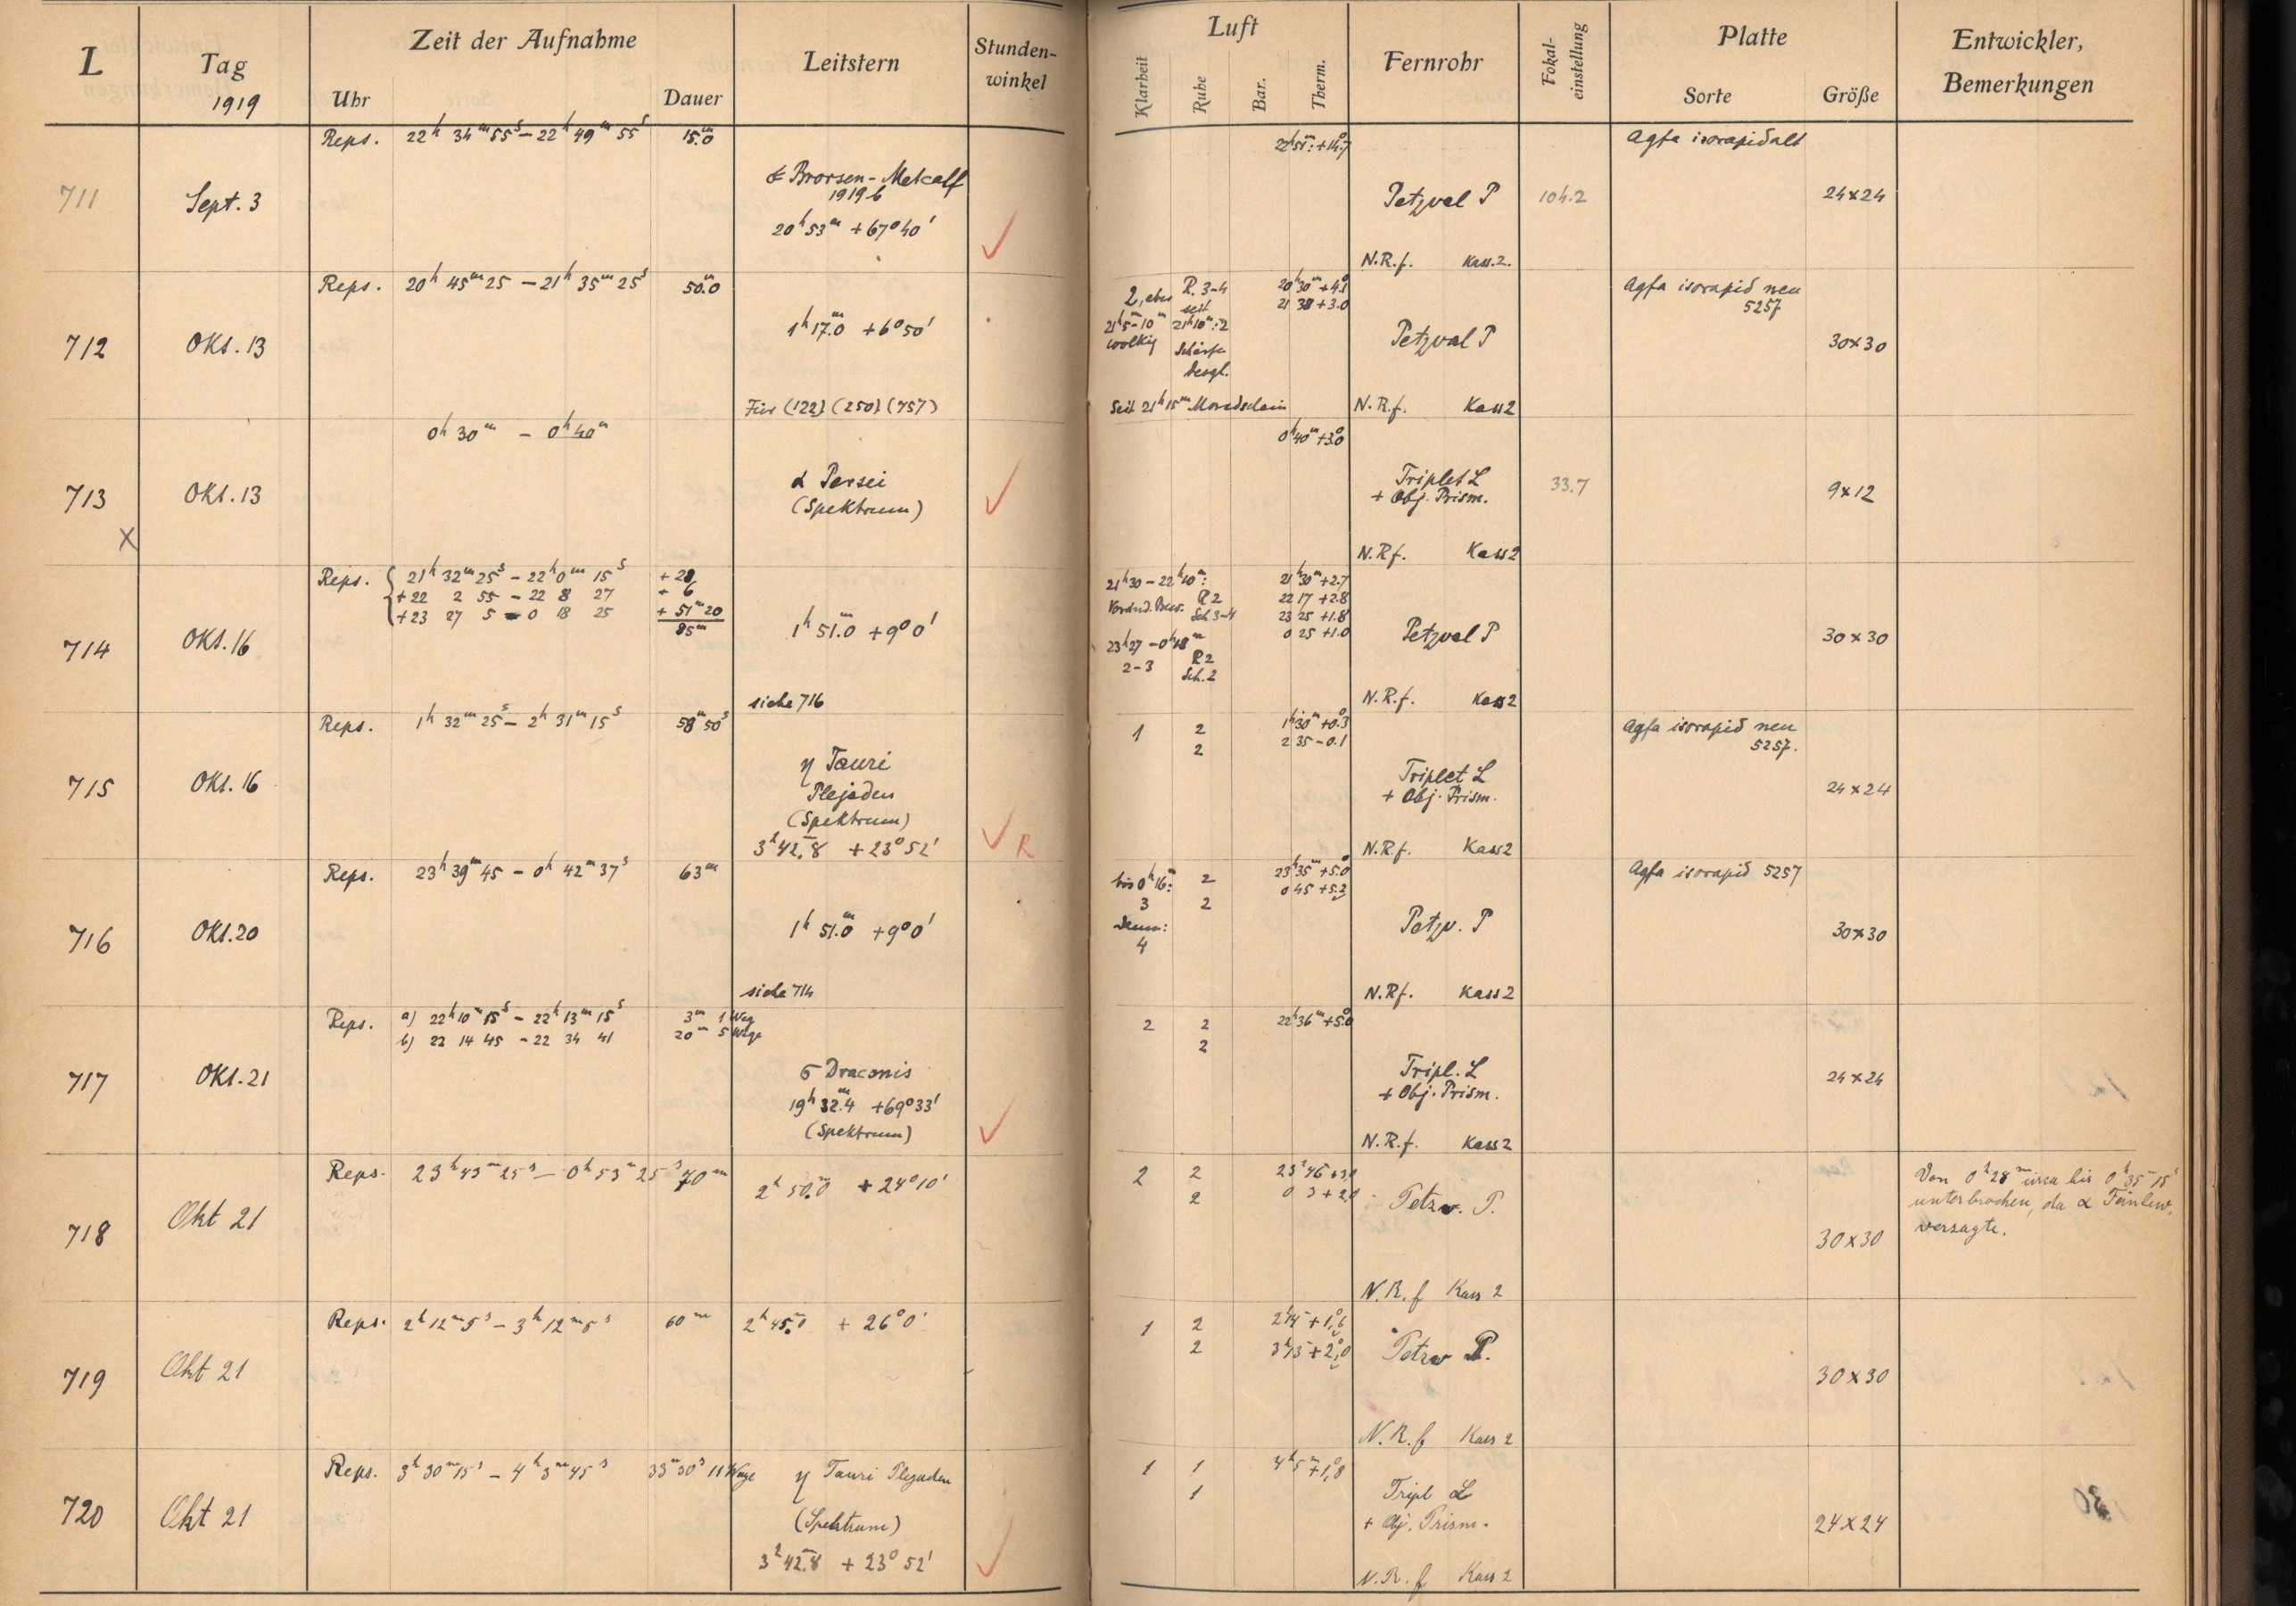 L
Tag
1919
Zeit der Aufnahme
Uhr
Dauer
Leitstern
Stunden-
winkel
Luft
Klarheit
Ruhe
Bar.
Therm.
Fernrohr
Fokal-
einstellung
Platte
Sorte
Größe
Entwickler,
Bemerkungen
711
Sept. 3
Reps. 22h 34m 55s – 22h 49m 55s
15.m0
Brorsen-Metcalf
1919b
20h 53m +67° 40'
Petzval P
N.R.f. Kass. 2.
104.2
Agfa isorapid alt
24×24
712
Okt. 13
Reps. 20h 45m 25 – 21h 35m 25s
50.m0
1h 17.m0 +6° 50'
Für (122) (250) (757)
2, aber R. 3-4
seit
21h 5-10m 21h 10m: 2
wolkig Schärfe
desgl.
Seit 21h 15m Mondschein
20h 30m +4.1
21 38 +3.0
Petzval P
N.R.f. Kass 2
Agfa isorapid neu
5257
30×30
713
X
Okt. 13
0h 30m – 0h 40m
α Persei
(Spektrum)
0h 40m +3.°0
Triplet L
+ Obj. Prism.
N.R.f. Kass 2
33.7
9×12
714
Okt. 16
Reps. 21h 32m 25s – 22h 0m 15s + 28
+22 2 55 – 22 8 27 + 6
+23 27 5 – 0 18 25 + 51m 20
85m
1h 51.m0 +9° 0'
siehe 716
21h 30 – 22h 10m:
R 2
Sch. 3-4
23h 27 – 0h 18m
2-3 R 2
Sch. 2
21h 30m +2.7
22 17 +2.8
23 25 +1.8
0 25 +1.0
Petzval P
N.R.f. Kass 2
30×30
715
Okt. 16
Reps. 1h 32m 25s – 2h 31m 15s
58m 50s
η Tauri
Plejaden
(Spektrum)
3h 42.m8 +23° 52'
R
1 2
2
1h 30m +0.3
2 35 –0.1
Triplet L
+ Obj. Prism.
N.R.f. Kass 2
Agfa isorapid neu
5257.
24×24
716
Okt. 20
Reps. 23h 39m 45 – 0h 42m 37s
63m
1h 51.m0 +9° 0'
siehe 714
bis 0h 16m: 2
3 2
dann:
4
23h 35m +5.°0
0 45 +5.2
Petzv. P
N.R.f. Kass 2
Agfa isorapid 5257
30×30
717
Okt. 21
Reps. a) 22h 10m 15s – 22h 13m 15s 3m 1 Weg
b) 22 14 45 – 22 34 41 20m 5 Wege
σ Draconis
19h 32.m4 +69° 33'
(Spektrum)
2 2
2
22h 36m +5.°0
Tripl. L
+ Obj. Prism.
N.R.f. Kass 2
24×24
718
Okt 21
Reps. 23h 43m 25s – 0h 53m 25s 70m
2h 50.m0 + 24° 10'
2 2
2
Petzv. P.
N.R.f Kass 2
30×30
Von 0h 28m circa bis 0h 35m 15s
unterbrochen, da α
versagte.
719
Okt 21
Reps. 2h 12m 5s – 3h 12m 5s
60m
2h 45.m0 + 26° 0'
1 2
2
2h 14m +1,°6
3h 13m +2,°0
Petzv P.
N.R.f Kass 2
30×30
720
Okt 21
Reps. 3h 30m 15s – 4h 3m 45s
33m 30s 11 Wege
η Tauri Plejaden
(Spektrum)
3h 42.m8 + 23° 52'
1 1
1
4h 5m +1,8
Tripl L
+ Obj. Prism.
N.R.f Kass 2
24×24